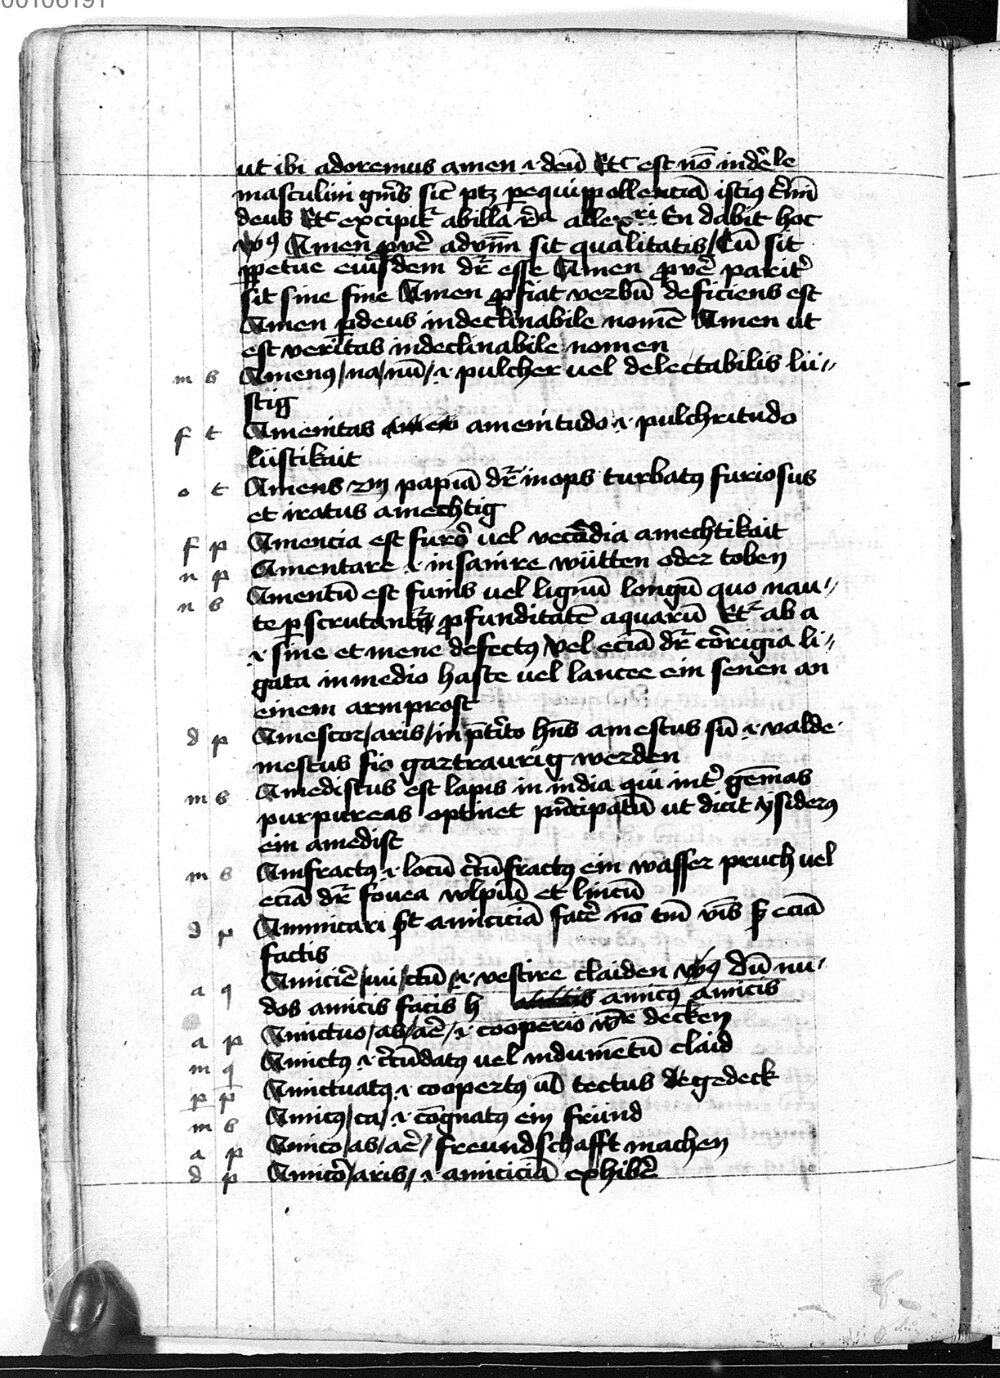 00106191
ut ibi adoremus amen .i. deū Etc est nō indēle
masculini gnēs sic ptz pequippollentiā istiꝰ
deus Etc excipit abilla alleꝝ En dabit hoc
Amen advm sit qualitatis / Cū sit
ꝑpetue eiusdem dr̄ esse Amen parit
sit sine fine Amen ꝓ fiat verbū deficiens est
Amen ꝓ deus indeclinabile nomē Amen ut
est veritas indeclinabile nomen
m s Amenꝰ / na / nū / .i. pulcher vel delectabilis lu//
stig
f t Amenitas amenitudo .i. pulchritudo
lüstikait
o t Amens papiā dr̄ inops turbatꝰ furiosus
et iratus amechtig
f p Amencia est furor vel vecordia amechtikait
n p Amentare .i. insanire wütten oder toben
n s Amentū est funis vel lignū longū quo nau//
te ꝑscrutant ꝓfunditatē aquarū Et ab a
.i. sine et mene defectꝰ Vel eciā dr̄ corrigia li//
gata in medio haste vel lancee ein senen an
einem armprost
d p Amestor / aris / in ptito hns amestus sū .i. valde
mestus sio gar traurig werden
m s Amedistus est lapis in india qui int gēmas
purpureas optinet pncipatū ut dicit ysiderꝰ
ein amedist
m s Amfractꝰ .i. locū fractꝰ ein wasser pruch vel
eciā dr̄ fovea wlpiū et lincū
d p Amicari est amiciciā facē nō tm̄ eciā
factis
a q Amicīe / ui / ctū .i. vestire claiden Dū nu//
dos amicis facis h amicꝰ amicis
a p Amictuo / as / aē / .i. cooperio decken
m q Amictꝰ .i. vel indumentū claid
p p Amictuatꝰ .i. coopertꝰ vl tectus degedeck
m s Amicꝰ / ca / .i. cōgnatꝰ ein fründ
a p Amico / as / aē / freundschafft machen
d p Amicor / aris / .i. amiciciā exhibē